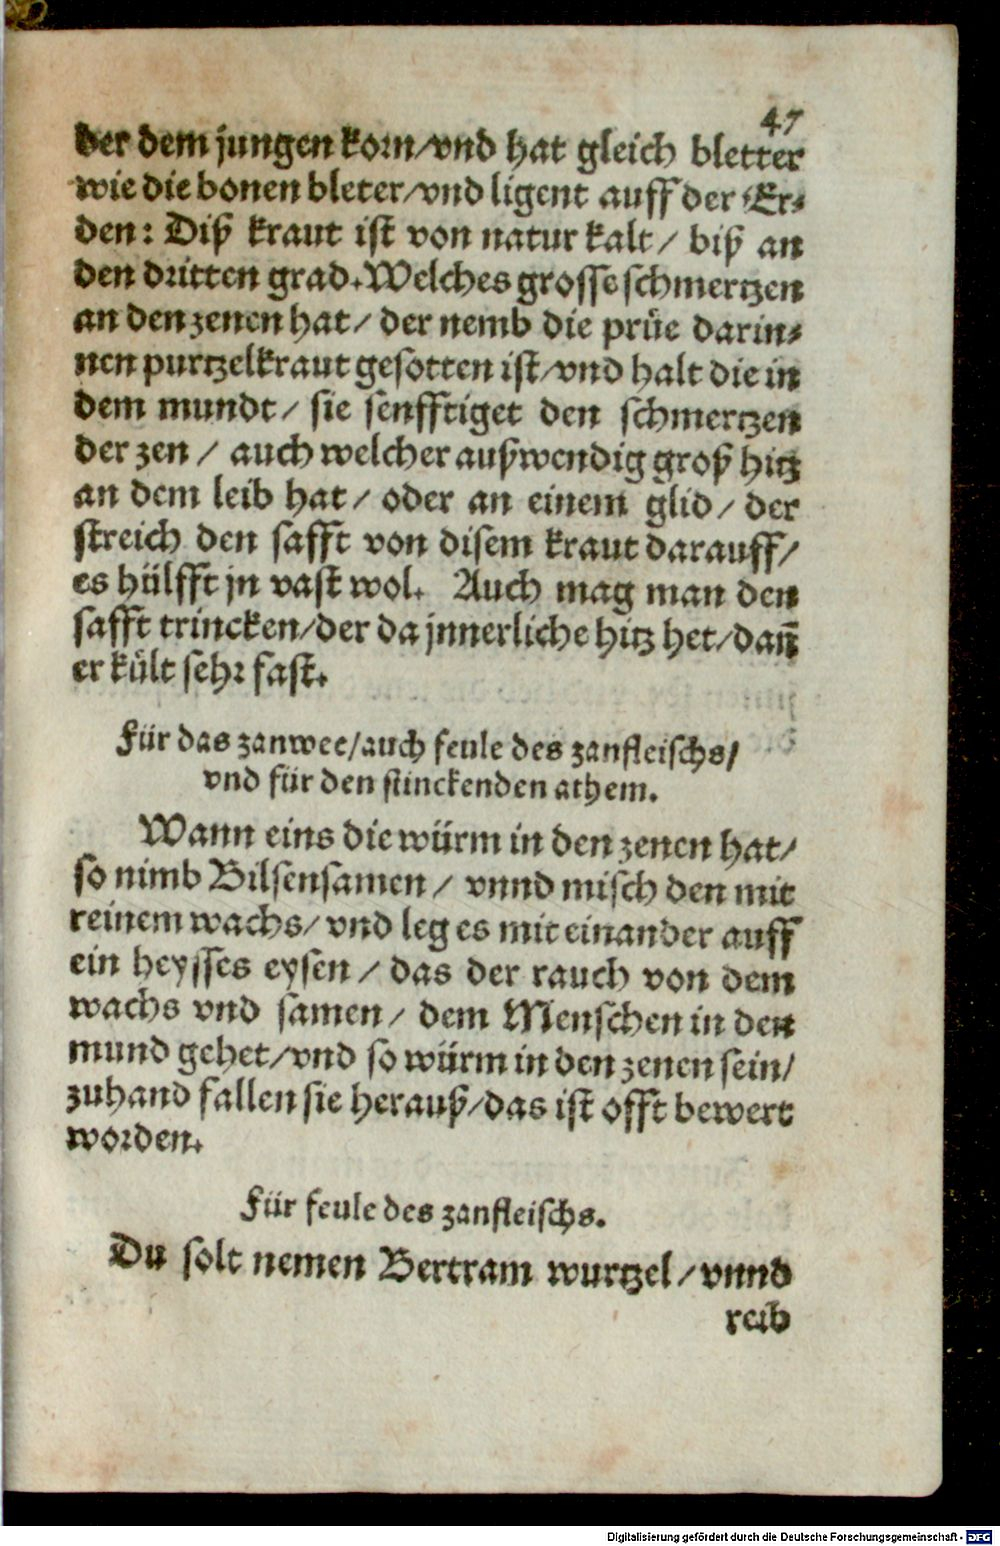 47
der dem jungen korn/vnd hat gleich bletter
wie die bonen bleter/vnd ligent auff der Er⸗
den: Diß kraut ist von natur kalt/ biß an
den dritten grad. Welches grosse schmertzen
an den zenen hat/ der nemb die prüe darin⸗
nen purtzelkraut gesotten ist/vnd halt die in
dem mundt/ sie senfftiget den schmertzen
der zen/ auch welcher außwendig groß hitz
an dem leib hat/ oder an einem glid/ der
streich den safft von disem kraut darauff/
es hülfft jn vast wol. Auch mag man den
safft trincken/der da jnnerliche hitz het/dañ
er költ sehr fast.
Für das zanwee/auch feule des zanfleischs/
vnd für den stinckenden athem.
Wann eins die würm in den zenen hat/
so nimb Bilsensamen/ vnnd misch den mit
reinem wachs/ vnd leg es mit einander auff
ein heysses eysen/ das der rauch von dem
wachs vnd samen/ dem Menschen in den
mund gehet/vnd so würm in den zenen sein/
zuhand fallen sie herauß/das ist offt bewert
worden.
Für feule des zanfleischs.
Du solt nemen Bertram wurtzel/ vnnd
reib
Digitalisierung gefördert durch die Deutsche Forschungsgemeinschaft - DFG